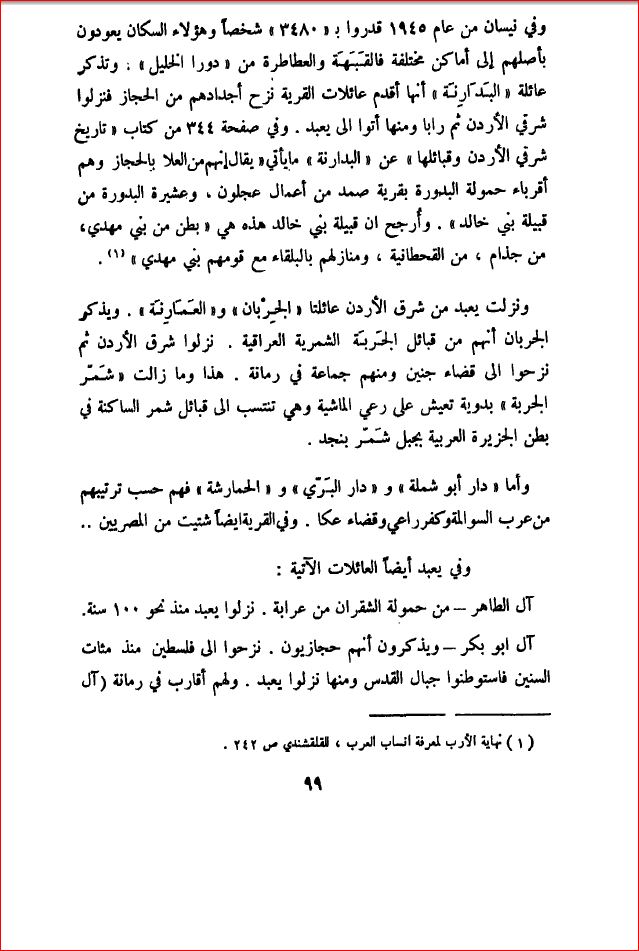 وفي نيسان من عام ١٩٤٥ قدروا بـ « ٣٤٨٠ » شخصاً وهؤلاء السكان يعودون
بأصلهم إلى أماكن مختلفة فالقَبَهَة والعطاطرة من « دورا الخليل » . وتذكر
عائلة « البَدَارِنَة » أنها أقدم عائلات القرية نزح أجدادهم من الحجاز فنزلوا
شرقي الأردن ثم رابا ومنها أتوا الى يعبد . وفي صفحة ٣٤٤ من كتاب « تاريخ
شرقي الأردن وقبائلها » عن « البدارنة » مايأتي « يقال إنهم من العلا بالحجاز وهم
أقرباء حمولة البدورة بقرية صمد من أعمال عجلون ، وعشيرة البدورة من
قبيلة بني خالد » . وأُرجح ان قبيلة بني خالد هذه هي « بطن من بني مهدي،
من جذام ، من القحطانية ، ومنازلهم بالبلقاء مع قومهم بني مهدي » (١) .
ونزلت يعبد من شرق الأردن عائلتا « الجِرْبان » و« العَمَارنَة » . ويذكر
الجربان أنهم من قبائل الجَربَة الشمرية العراقية . نزلوا شرق الأردن ثم
نزحوا الى قضاء جنين ومنهم جماعة في رمانة . هذا وما زالت « شَمّر
الجربة » بدوية تعيش على رعي الماشية وهي تنتسب الى قبائل شمر الساكنة في
بطن الجزيرة العربية بجبل شَمّر بنجد .
وأما « دار أبو شملة » و « دار البَرّي » و « الحمارشة » فهم حسب ترتيبهم
من عرب السوالمة وكفرراعي وقضاء عكا . وفي القرية ايضاً شتيت من المصريين ..
وفي يعبد أيضاً العائلات الآتية :
آل الطاهر – من حمولة الشقران من عرابة . نزلوا يعبد منذ نحو ١٠٠ سنة.
آل ابو بكر – ويذكرون أنهم حجازيون . نزحوا الى فلسطين منذ مئات
السنين فاستوطنوا جبال القدس ومنها نزلوا يعبد . ولهم أقارب في رمانة (آل
(١) نهاية الأرب لمعرفة انساب العرب ، للقلقشندي ص ٢٤٢ .
٩٩